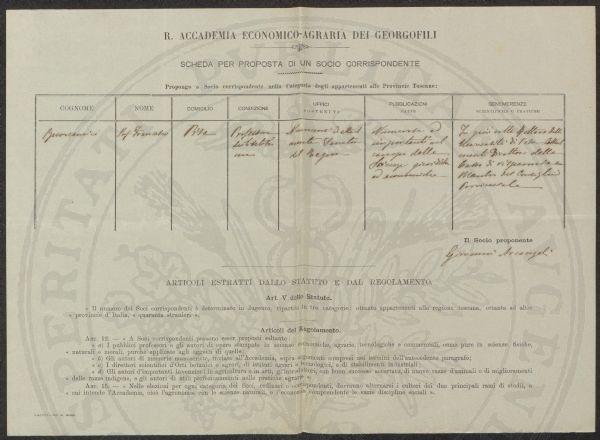 R. ACCADEMIA ECONOMICO-AGRARIA DEI GEORGOFILI
SCHEDA PER PROPOSTA DI UN SOCIO CORRISPONDENTE
Propongo a Socio corrispondente nella Categoria degli appartenenti alle Provincie Toscane:
COGNOME NOME DOMICILIO CONDIZIONE UFFICI PUBBLICAZIONI BENEMERENZE
SCIENTIFICHE O PRATICHE
Buonamici Prof Francesco Pisa Professore
Numerose ed
importanti nel
campo delle
Scienze giuridiche
ed economiche
Fu più volte Rettore della
Università di Pisa
Direttore della
Cassa di risparmio
membro del Consiglio
Provinciale
Senatore
del Regno
Il Socio proponente
Giovanni Arcangeli
ARTICOLI ESTRATTI DALLO STATUTO E DAL REGOLAMENTO.
Art. V dello Statuto.
« Il numero dei Soci corrispondenti è determinato in dugento, ripartiti in tre categorie: ottanta appartenenti alle regione toscana, ottanta ad altre
« provincie d'Italia, « quaranta stranieri ».
Articoli del Regolamento.
ART. 12. — « A Soci corrispondenti possono esser proposti soltanto:
« a) I pubblici professori e gli autori di opere stampate in scienze economiche, agrarie, tecnologiche e commerciali, come pure in scienze fisiche,
« naturali e morali, purchè applicate agli oggetti di quelle;
« b) Gli autori di memorie manoscritte, inviate all'Accademia, sopra argomenti compresi nei termini dell'antecedente paragrafo;
« c) I direttori scientifici d'Orti botanici e agrari, di istituti agrari e tecnologici, e di stabilimenti industriali;
« d) Gli autori d'importanti invenzioni in agricoltura e in arti, gl'introduttori, con buon successo accertato, di nuove razze d'animali e di miglioramenti
« delle razze indigene, e gli autori di utili perfezionamenti nelle pratiche agrarie ».
ART. 15. — « Nelle elezioni per ogni categoria dei Soci, ordinari o corrispondenti, dovranno alternarsi i cultori dei due principali rami di studii, a
« cui intende l'Accademia, cioè l'agronomia con le scienze naturali, e l'economia comprendente le varie discipline sociali ».